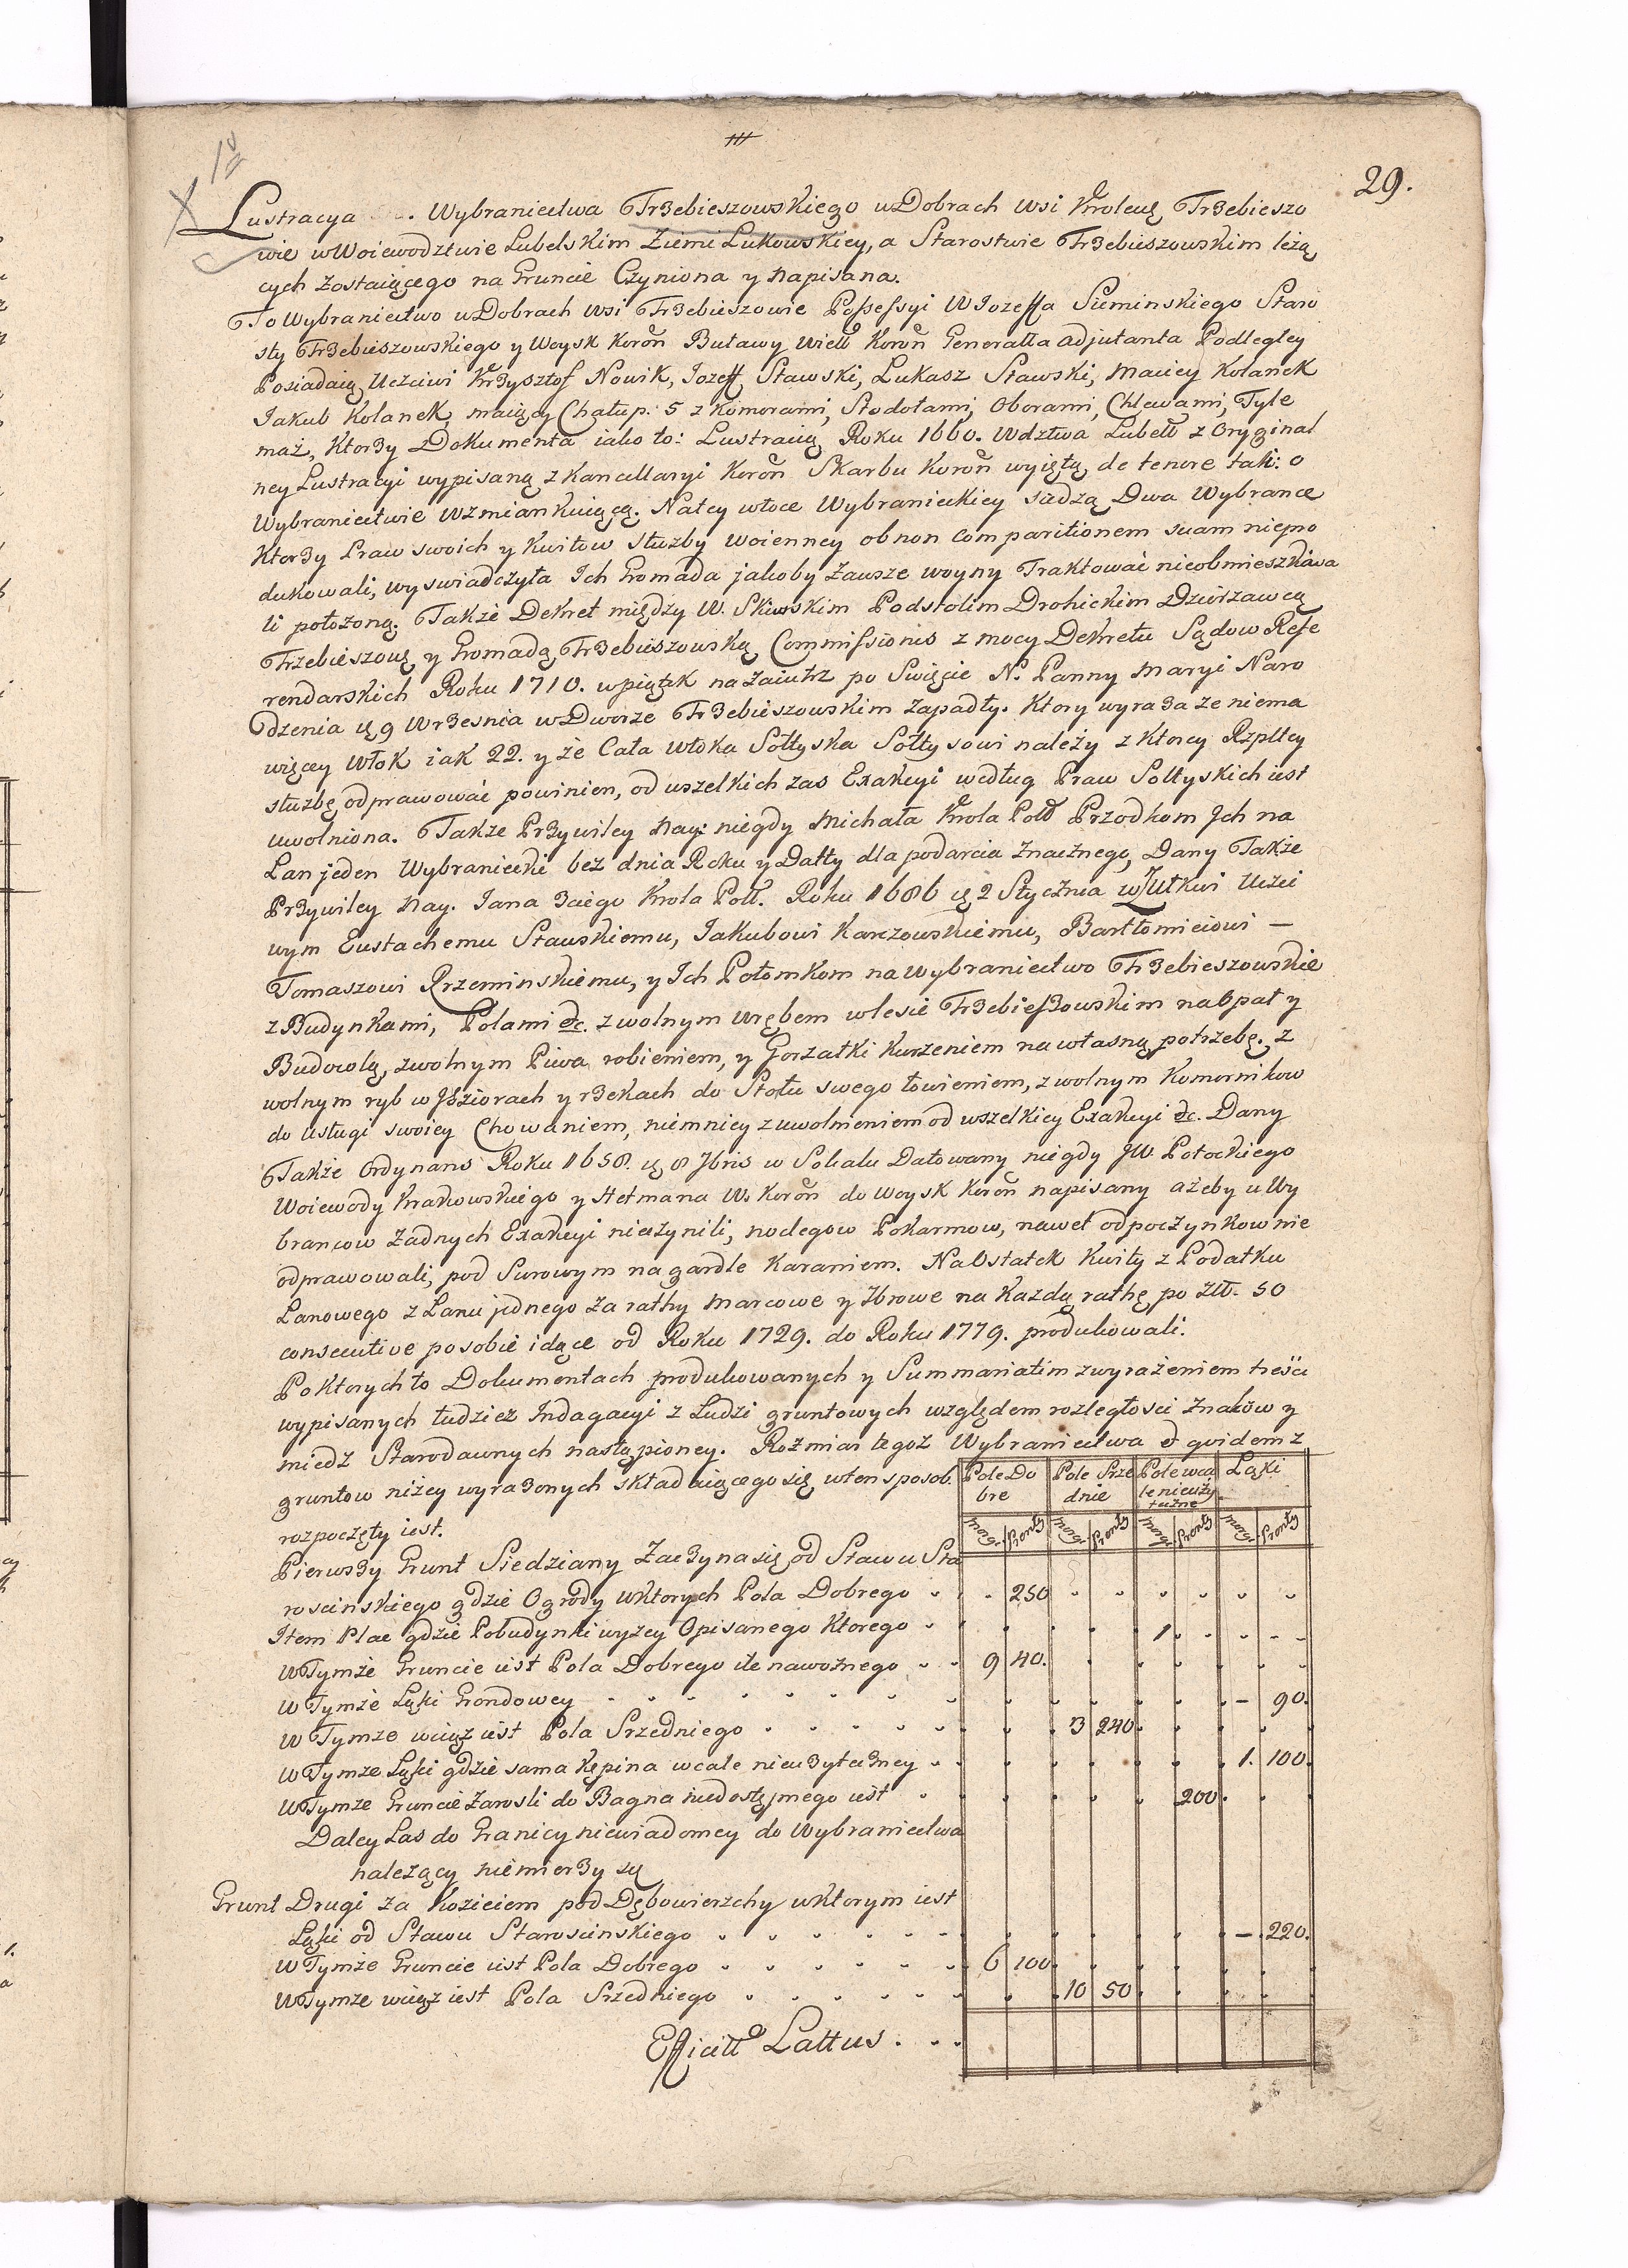 29.
Lustracya Wybraniectwa Trzebieszowskiego w Dobrach wsi Krolew Trzebieszo
wie w Woiewodztwie Lubelskim Ziemi Lukowskiey, a Starostwie Trzebieszowskim leżą
cych zostaiącego na Gruncie Czyniona y napisana.
To Wybraniectwo w Dobrach wsi Trzebieszowie Possessyi W Jozeffa Sieminskiego Staro
sty Trzebieszowskiego y Woysk Koroñ Buławy Wiell Koroñ Generałła adjutanta Podległey
Posiadaią Uczciwi Krzysztof Nowik, Jozeff Sławski, Lukasz Sławski, Maciey Kolanek
Jakub Kolanek, maiący Chałup. 5 z Komorami, Stodołami, Oborami, Chlewami, Tyle
maż, Ktorzy Dokumenta iako to: Lustracią Roku 1660. Wdztwa Lubell z Oryginal
ney Lustracyi wypisaną z Kancellaryi Koroñ Skarbu Koroñ wyiętą, de tenore tak: o
Wybraniectwie wzmiankuiącą. Na tey włoce Wybranieckiey siedzą Dwa Wybrance
Ktorzy Praw swoich y Kwitow służby woienney ob non Comparitionem suam niepro
dukowali, wyswiadczyła Ich Gromada jakoby zawsze woyny Traktować nieobmieszkiwa
li położoną. Także Dekret między W. Skiwskim Podstolim Drohickim Dzierzawcą
Trzebieszow y Gromadą Trzebieszowską Commissionis z mocy Dekretu Sądow Refe
rendarskich Roku 1710. w piątek nazaiutrz po Swięcie N. Panny Maryi Naro
dzenia ą 9 Wrzesnia w Dworze Trzebieszowskim zapadły. Ktory wyraza ze niema
więcey Włok iak 22. y że Cała włoka Sołtyska Sołtysowi należy z Ktorey Rzpltey
służbę odprawować powinien, od wszelkich zas Exakcyi według Praw Sołtyskich iest
uwolniona. Takze Przywiley Nay: niegdy Michała Krola Poll Przodkom Jch na
Lan jeden Wybraniecki bez dnia Roku y Datty dla podarcia znacznego, Dany Także
Przywiley Nay. Jana 3ciego Krola Poll. Roku 1686 ą 2 Stycznia w Żułkwi Uczci
wym Eustachemu Stawskiemu, Jakubowi Karczowskiemu, Bartłomieiowi —
Tomaszowi Krzeminskiemu, y Ich Potomkom na Wybraniectwo Trzebieszowskie
z Budynkami, Polami &c. z wolnym wrębem w lesie Trzebieszowskim na Opał y
Budowlą, z wolnym Piwa robieniem, y Gorzałki Kurzeniem na własną potrzebę, z
wolnym ryb w Jeziorach y rzekach do Stołu swego łowieniem, z wolnym Komornikow
do Usługi swoiey Chowaniem, niemniey z uwolnieniem od wszelkiey Exakcyi &c. Dany
Także Ordynans Roku 1658. ą 8 7bris w Sokalu Datowany niegdy JW. Potockiego
Woiewody Krakowskiego y Hetmana W. Koroñ do Woysk Koroñ napisany ażeby u Wy
brancow żadnych Exakcyi nieczynili, noclegow Pokarmow, nawet odpoczynkow nie
odprawowali, pod Surowym na gardle Karaniem. Na Ostatek Kwity z Podatku
Lanowego z Lanu jednego za rathy Marcowe y 7browe na Każdą rathę po zlł. 50
consecutive po sobie idące od Roku 1729. do Roku 1779. produkowali.
Po Ktorych to Dokumentach produkowanych y Summariatim z wyrażeniem treści
wypisanych tudziez Indagacyi z Ludzi gruntowych względem rozległosci znaków y
miedz Starodawnych nastąpioney. Rozmiar tegoż Wybraniectwa et qvidem z
gruntow niżey wyrażonych składaiącego się, w ten sposob
rozpoczęty iest.
Pole Do bre | Pole Srze dnie | Pole wca le nieuży teczne | Łąki
Morgi Pronty | Morgi Pronty | Morgi Pronty | Morgi Pronty
Pierwszy Grunt Siedziany Zaczyna się od Stawu Sta
roscinskiego gdzie Ogrody w Ktorych Pola Dobrego 250
Item Plac gdzie Pobudynki wyżey Opisanego Ktorego 1
W Tymże Gruncie iest Pola Dobrego ile nawoznego 9 40.
W Tymże Łąki Grondowey — 90.
W Tymze wciąż iest Pola Srzedniego 3 240
W Tymze Łąki gdzie sama Kępina wcale nieużyteczney 1. 100.
W Tymze Gruncie Zarosli do Bagna niedostępnego iest 200
Daley Las do Granicy niewiadomey do Wybraniectwa
należący niemierzy się
Grunt Drugi za Kozieiem pod Dębowierzchy w Ktorym iest
Łąki od Stawu Staroscinskiego — 220.
W Tymże Gruncie iest Pola Dobrego 6 100
W Tymze wciąż iest Pola Srzedniego 10 50
Efficitt Lattus.